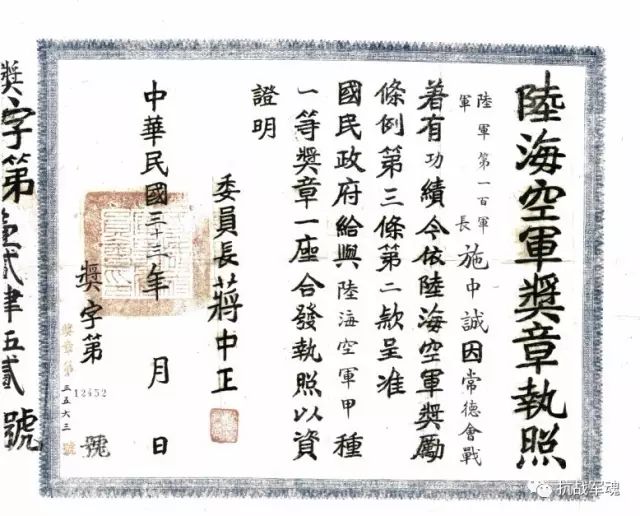 陸海空軍獎章執照
陸軍第一百軍
軍長
施中誠因常德會戰
著有功績今依陸海空軍獎勵
條例第三條第二款呈准
國民政府給與陸海空軍甲種
一等獎章一座合發執照以資
證明
委員長蔣中正
中華民國三十三年 月 日
獎字第 12452 號
獎章第三五六三號
獎字第壹貳肆五貳號
抗战军魂